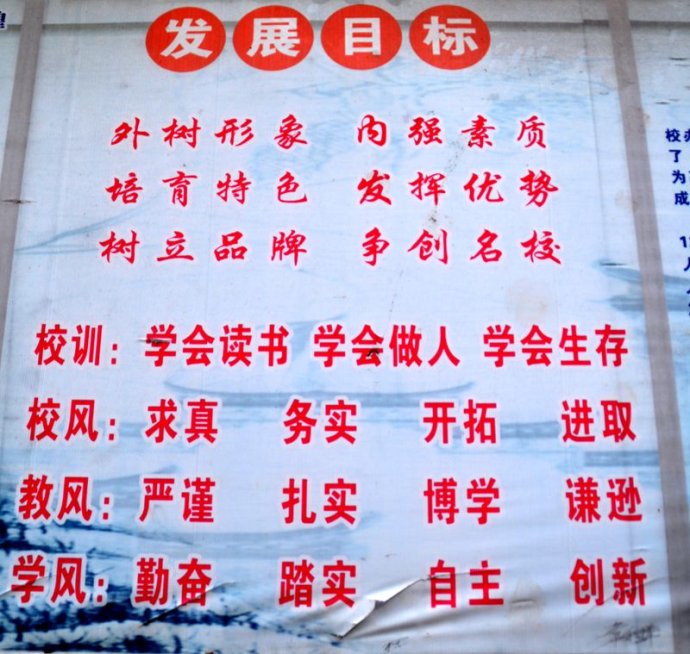 发展目标
外树形象 内强素质
培育特色 发挥优势
树立品牌 争创名校
校训：学会读书 学会做人 学会生存
校风：求真 务实 开拓 进取
教风：严谨 扎实 博学 谦逊
学风：勤奋 踏实 自主 创新
校
了
为
成